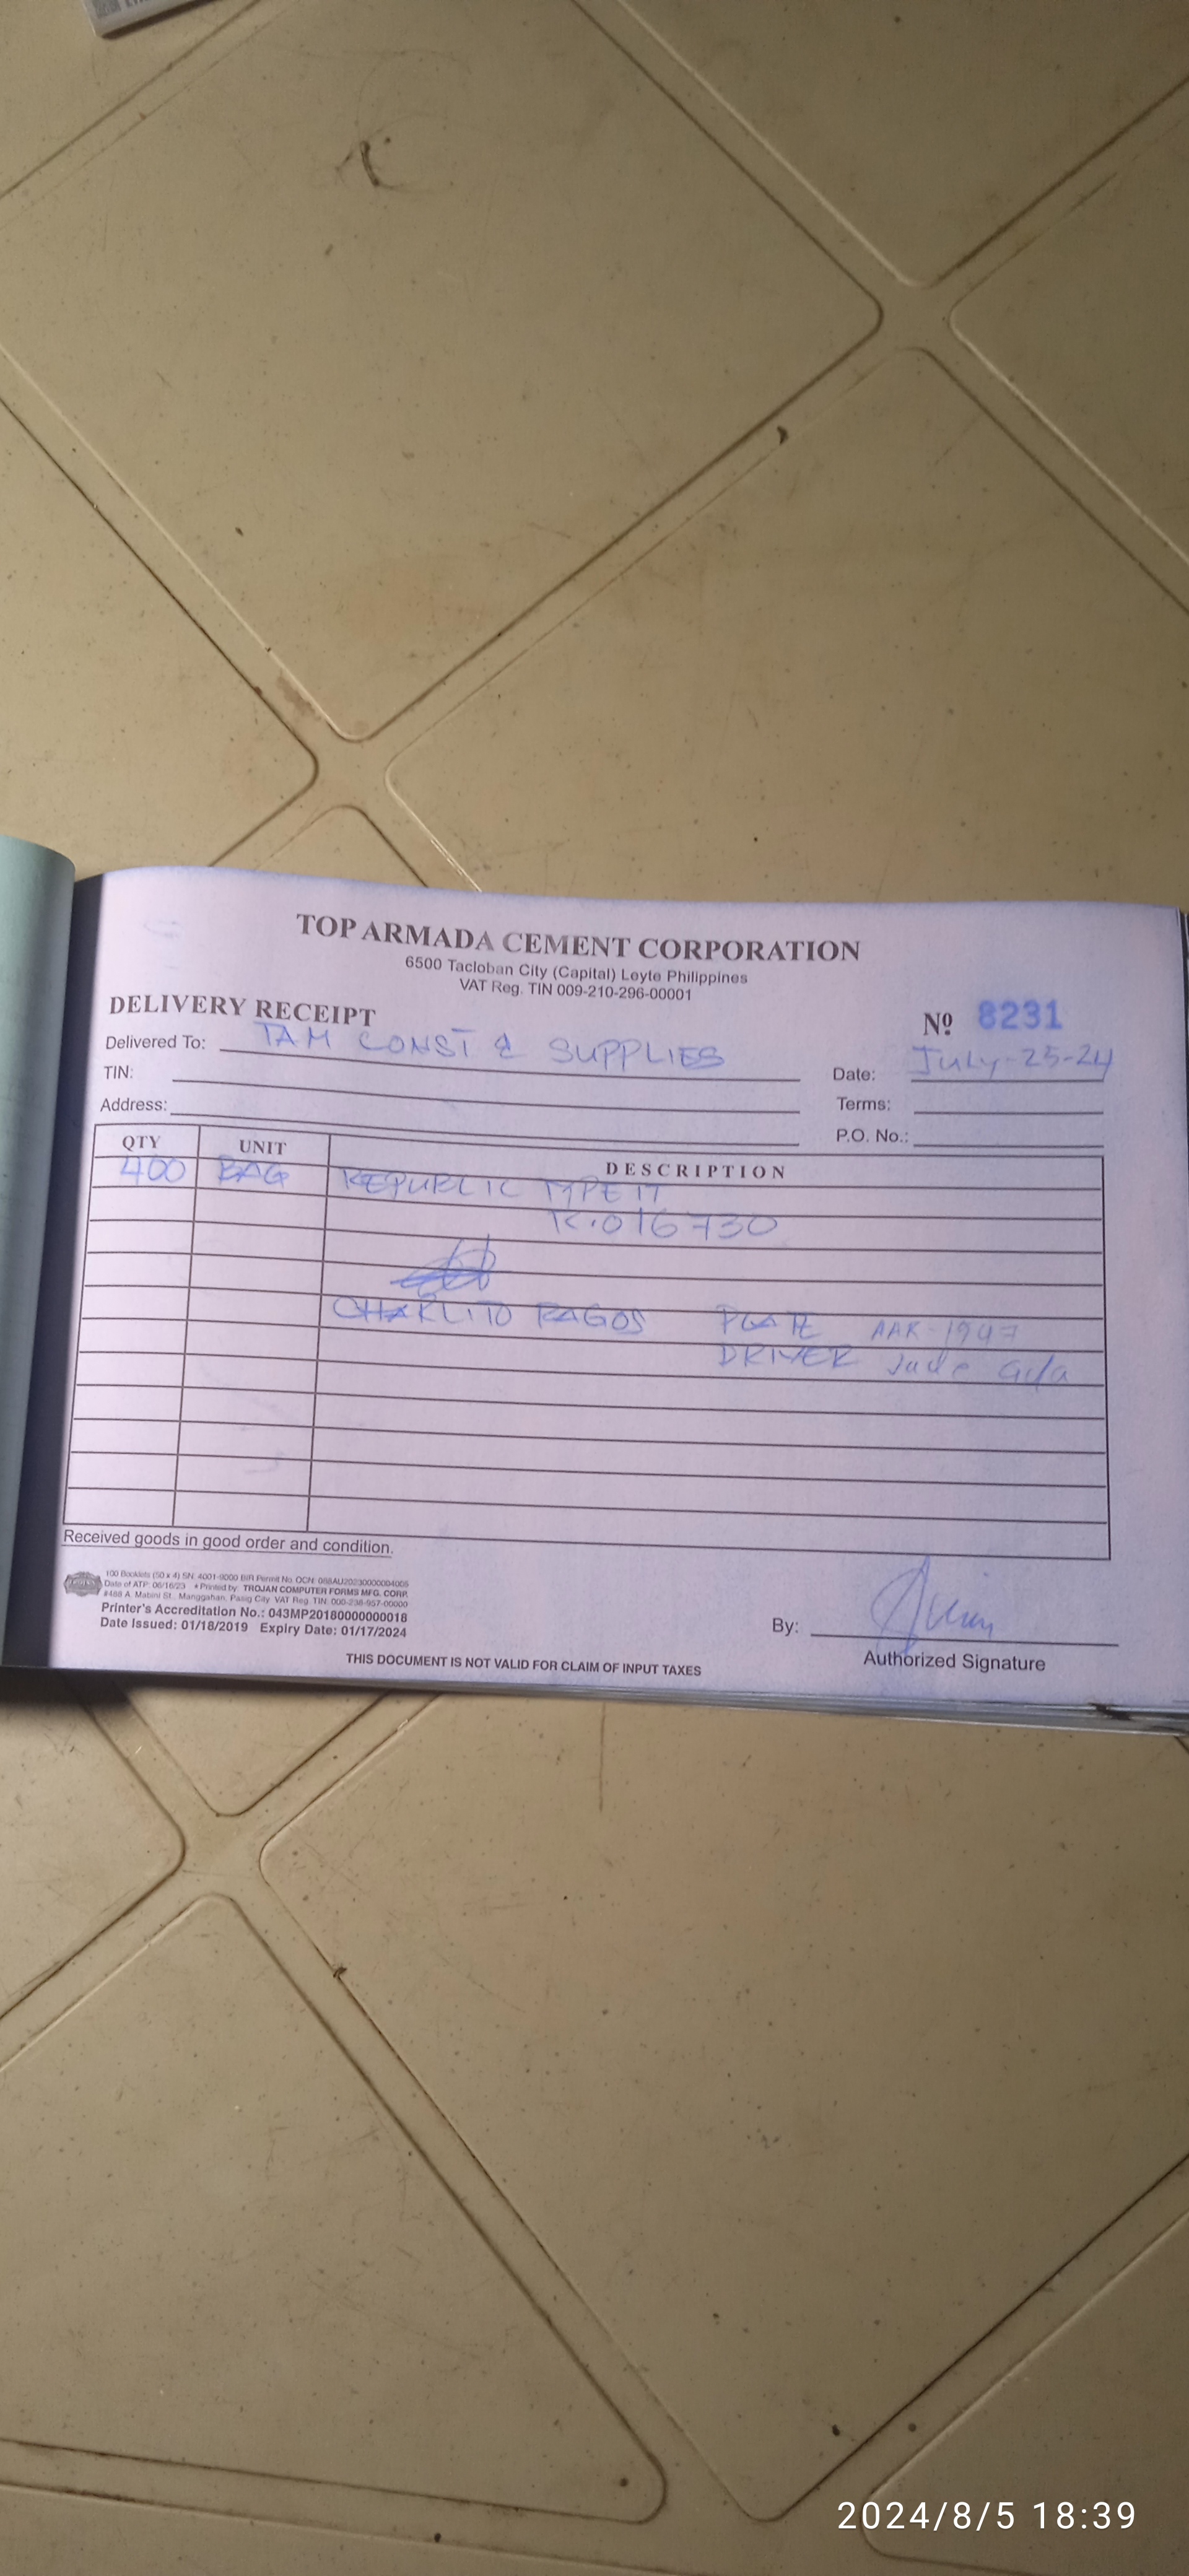 TOP ARMADA CEMENT CORPORATION
6500 Tacloban City (Capital) Leyte Philippines
VAT Reg. TIN 009-210-296-00001
DELIVERY RECEIPT
Nº 8231
Delivered To: TAM CONST & SUPPLIES
Date: July-25-24
TIN:
Terms:
Address:
P.O. No.:
QTY UNIT DESCRIPTION
400 BAG REPUBLIC TYPE 1T
K.016730
CHARLITO RAGOS PLATE AAK-1947
DRIVER Jude
Received goods in good order and condition.
100 Booklets (50 x 4) SN: 4001-9000 BIR Permit No. OCN:
Date of ATP: 06/16/23 Printed by: TROJAN COMPUTER FORMS MFG. CORP.
#488 A. Mabini St., Manggahan, Pasig City VAT Reg. TIN: 000-238-957-00000
Printer's Accreditation No.: 043MP20180000000018
Date Issued: 01/18/2019 Expiry Date: 01/17/2024
By:
Authorized Signature
THIS DOCUMENT IS NOT VALID FOR CLAIM OF INPUT TAXES
2024/8/5 18:39